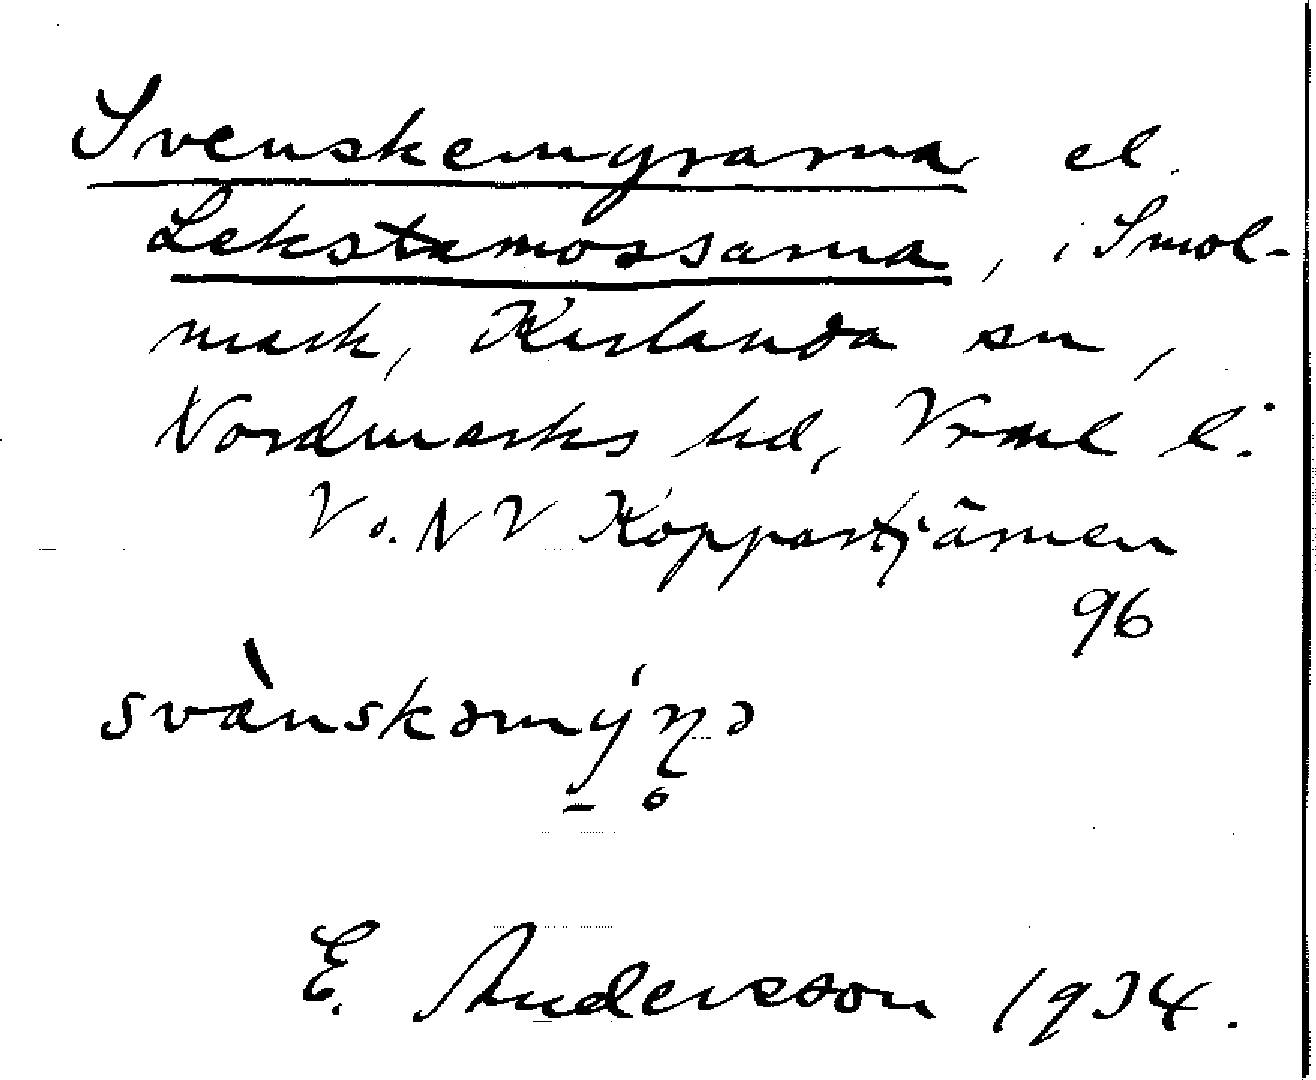 Svenskemyrarna el.
Lekstemossarna, i Smol-
mark, Karlanda sn,
Nordmarks hd, Vrml l.
V o. NV Koppartjärnen
96
svànskəmýṇə
E. Andersson 1934.